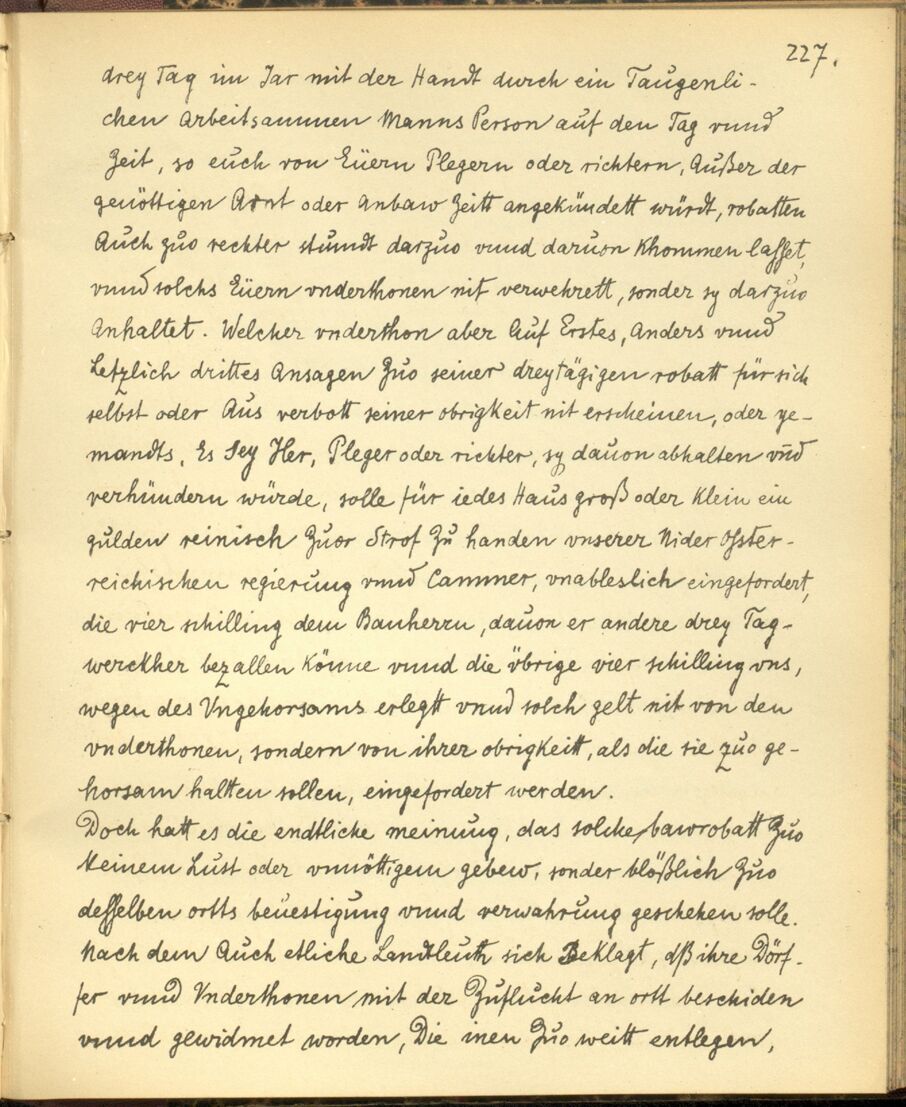 227.
drey Tag im Jar mit der Handt durch ein Taugenli-
chen Arbeitsammen Manns Person auf den Tag vnnd
Zeit, so euch von Eüern Plegern oder richtern, Außer der
genöttigen Arnt oder Anbaw Zeitt angekündett würdt, robatten
Auch zuo rechter stundt darzuo vnnd daruon Khommen lasset,
vnnd solchs Eüern vnderthonen nit verwehrett, sonder sy darzuo
Anhaltet. Welcher vnderthon aber Auf Erstes, Anders vnnd
Letzlich drittes Ansagen Zuo seiner dreytägigen robatt für sich
selbst oder Aus verbott seiner obrigkeit nit erscheinen, oder ye-
mandts, Es Sey Her, Pleger oder richter, sy dauon abhalten vnd
verhündern würde, solle für iedes Haus groß oder Klein ein
gulden reinisch Zuor Strof Zu handen vnserer Nider Osster-
reichischen regierung vnnd Cammer, vnableslich eingefordert,
die vier schilling dem Bauherrn, dauon er andere drey Tag-
werckher bezallen Könne vnnd die übrige vier schilling vns,
wegen des Vngehorsams erlegtt vnnd solch gelt nit von den
vnderthonen, sondern von ihrer obrigkeitt, als die sie zuo ge-
horsam haltten sollen, eingefordert werden.
Doch hatt es die endtliche meinung, das solche bawrobatt Zuo
Keinem Lust oder vnnöttigem gebew, sonder blößlich Zuo
desselben ortts beuestigung vnnd verwahrung geschehen solle.
Nach dem Auch etliche Landtleuth sich Beklagt, dß ihre Dörf-
fer vnnd Vnderthonen mit der Zuflucht an ortt beschiden
vnnd gewidmet worden, Die inen Zuo weitt entlegen,